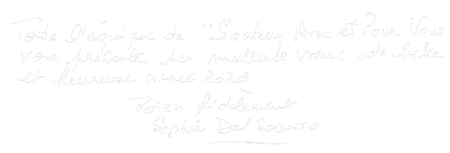 Toute l'équipe de "Santeny Avec et Pour Vous
vous présente ses meilleurs vœux de belle
et heureuse année 2020
Bien fidèlement
Sophie Del Socorro